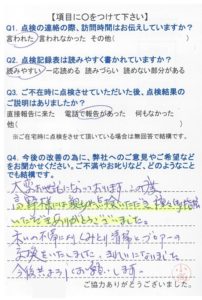 【項目に○をつけて下さい】
Q1. 点検の連絡の際、訪問時間はお伝えしていますか？
言われた 言われなかった その他(
Q2. 点検記録表は読みやすく書かれていますか？
読みやすい 一応読める 読みづらい 読めない部分がある
Q3. ご不在時に点検させていただいた後、点検結果の
ご説明はありましたか？
直接報告に来た 電話で報告があった 何もなかった
他(
※ご在宅時に点検をさせて頂いている場合は無回答で結構です。
Q4. 今後の改善の為に、弊社へのご意見やご希望など
をお聞かせください。ご不満やお叱りなど、どのようなこと
でも結構です。
大変お世話になっております。
いただきありがとうございました。
清掃とブロアーの
交換をいたしました。
今後共よろしくお願いします。
ご協力ありがとうございました。